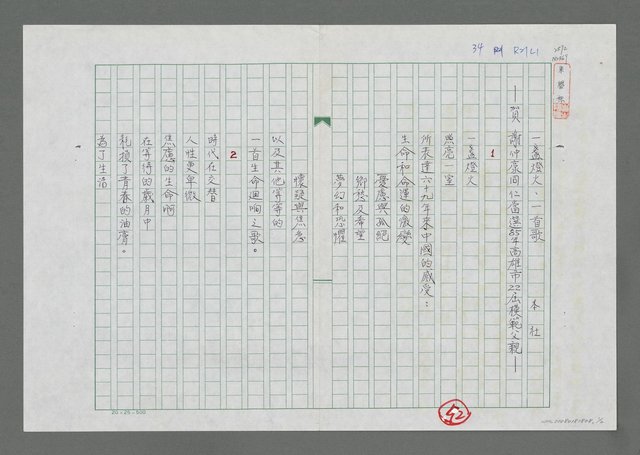 34 R21L1
一盞燈火、一首歌 本社
——賀 蕭仲廉同仁當選85年高雄市22屆模範父親——
1
一盞燈火
照亮一室
所表達六十九年來中國的感受:
生命和命運的激變
憂慮與孤絕
鄉愁及希望
夢幻和恐懼
懷疑與焦急
以及其他等等的
一首生命迴响之歌。
2
時代在交替
人性更卑微
焦慮的生命啊
在等待的歲月中
耗損了青春的油膏。
為了生活
52
20×25=500